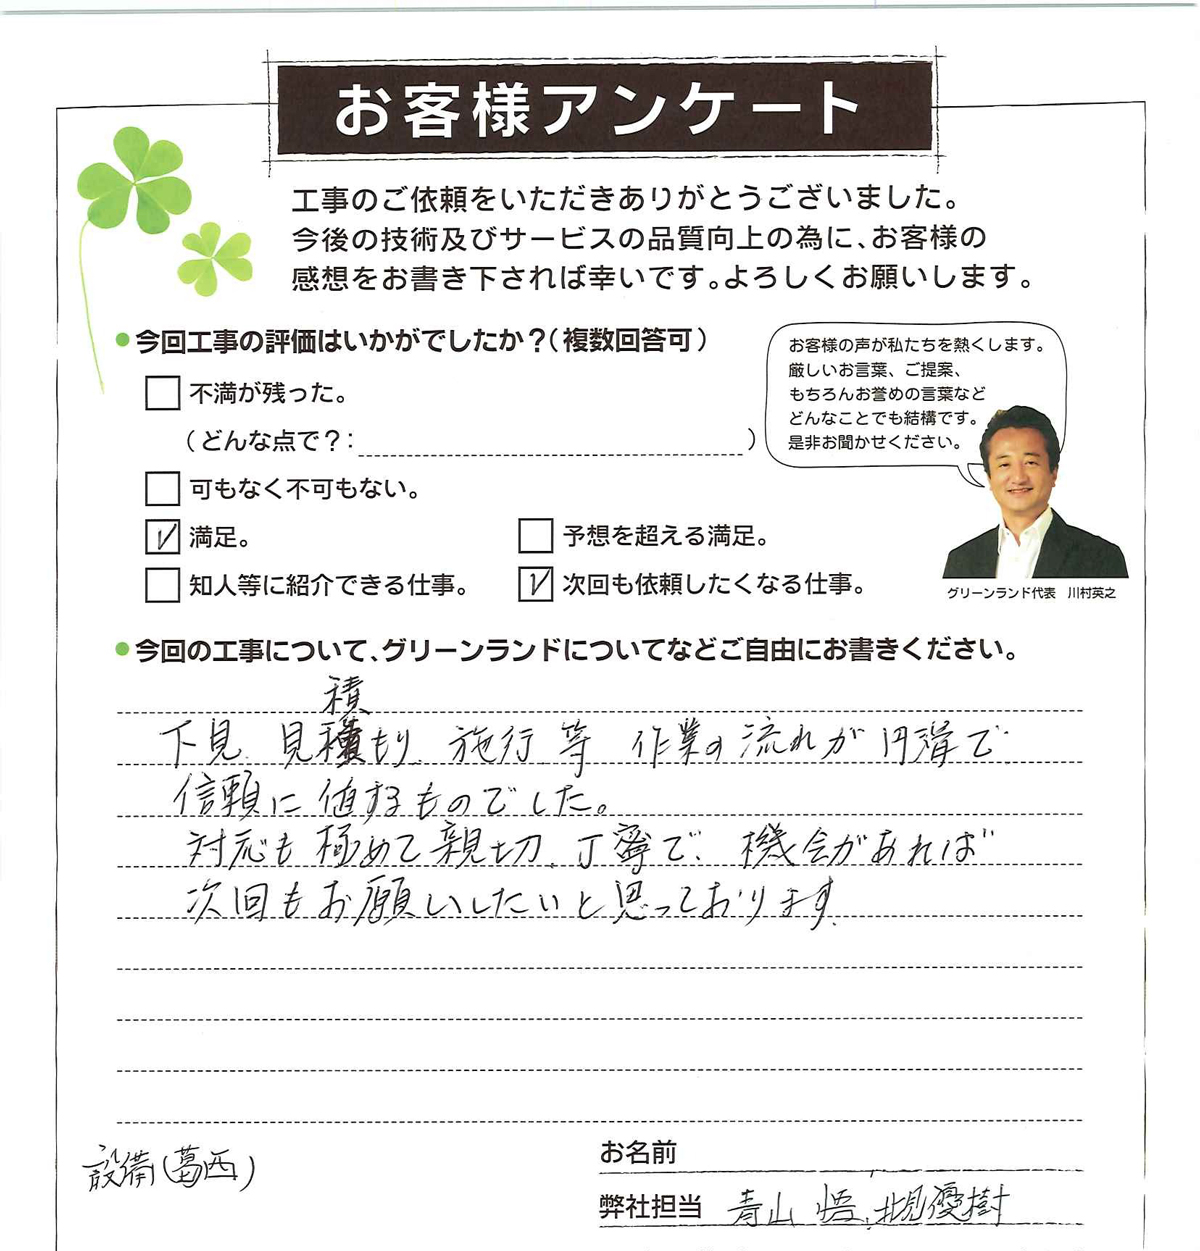 お客様アンケート
工事のご依頼をいただきありがとうございました。
今後の技術及びサービスの品質向上の為に、お客様の
感想をお書き下されば幸いです。よろしくお願いします。
今回工事の評価はいかがでしたか？(複数回答可)
不満が残った。
(どんな点で？：　)
可もなく不可もない。
満足。
予想を超える満足。
知人等に紹介できる仕事。
次回も依頼したくなる仕事。
お客様の声が私たちを熱くします。
厳しいお言葉、ご提案、
もちろんお誉めの言葉など
どんなことでも結構です。
是非お聞かせください。
グリーンランド代表　川村英之
今回の工事について、グリーンランドについてなどご自由にお書きください。
積
下見、見積もり、施行等 作業の流れが円滑で
信頼に値するものでした。
対応も極めて親切、丁寧で、機会があれば
次回もお願いしたいと思っております。
設備(葛西)
お名前
弊社担当 青山 悟、北見優樹